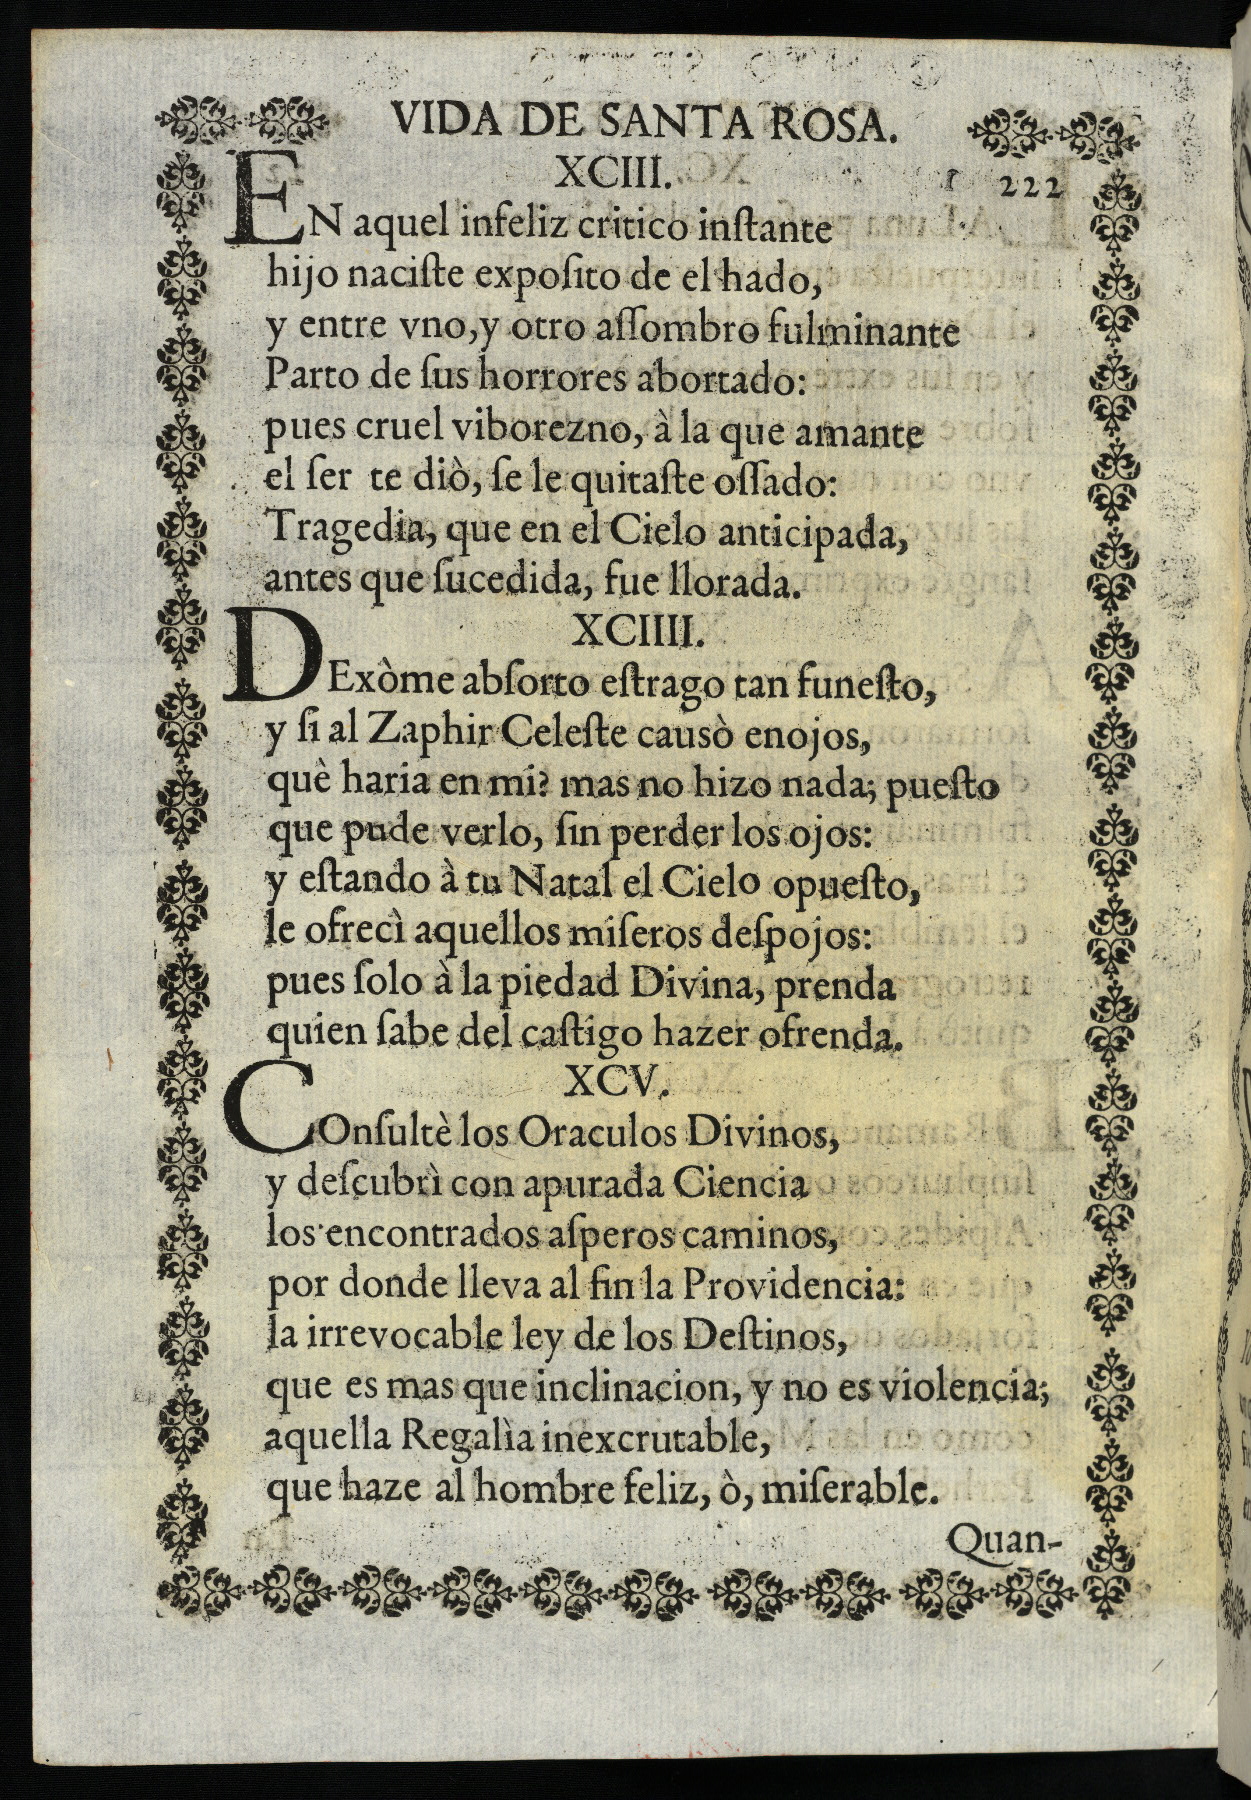 VIDA DE SANTA ROSA.
XCIII.
222
EN aquel infeliz critico inſtante
hijo naciſte expoſito de el hado,
y entre vno, y otro aſſombro fulminante
Parto de ſus horrores abortado:
pues cruel viborezno, à la que amante
el ſer te diò, ſe le quitaſte oſſado:
Tragedia, que en el Cielo anticipada,
antes que ſucedida, fue llorada.
XCIIII.
DExòme abſorto eſtrago tan funeſto,
y ſi al Zaphir Celeſte causò enojos,
què haria en mi? mas no hizo nada; pueſto
que pude verlo, ſin perder los ojos:
y eſtando à tu Natal el Cielo opueſto,
le ofrecì aquellos miſeros deſpojos:
pues ſolo à la piedad Divina, prenda
quien ſabe del caſtigo hazer ofrenda.
XCV.
COnſultè los Oraculos Divinos,
y deſcubrì con apurada Ciencia
los encontrados aſperos caminos,
por donde lleva al fin la Providencia:
la irrevocable ley de los Deſtinos,
que es mas que inclinacion, y no es violencia;
aquella Regalìa inexcrutable,
que haze al hombre feliz, ò, miſerable.
Quan-